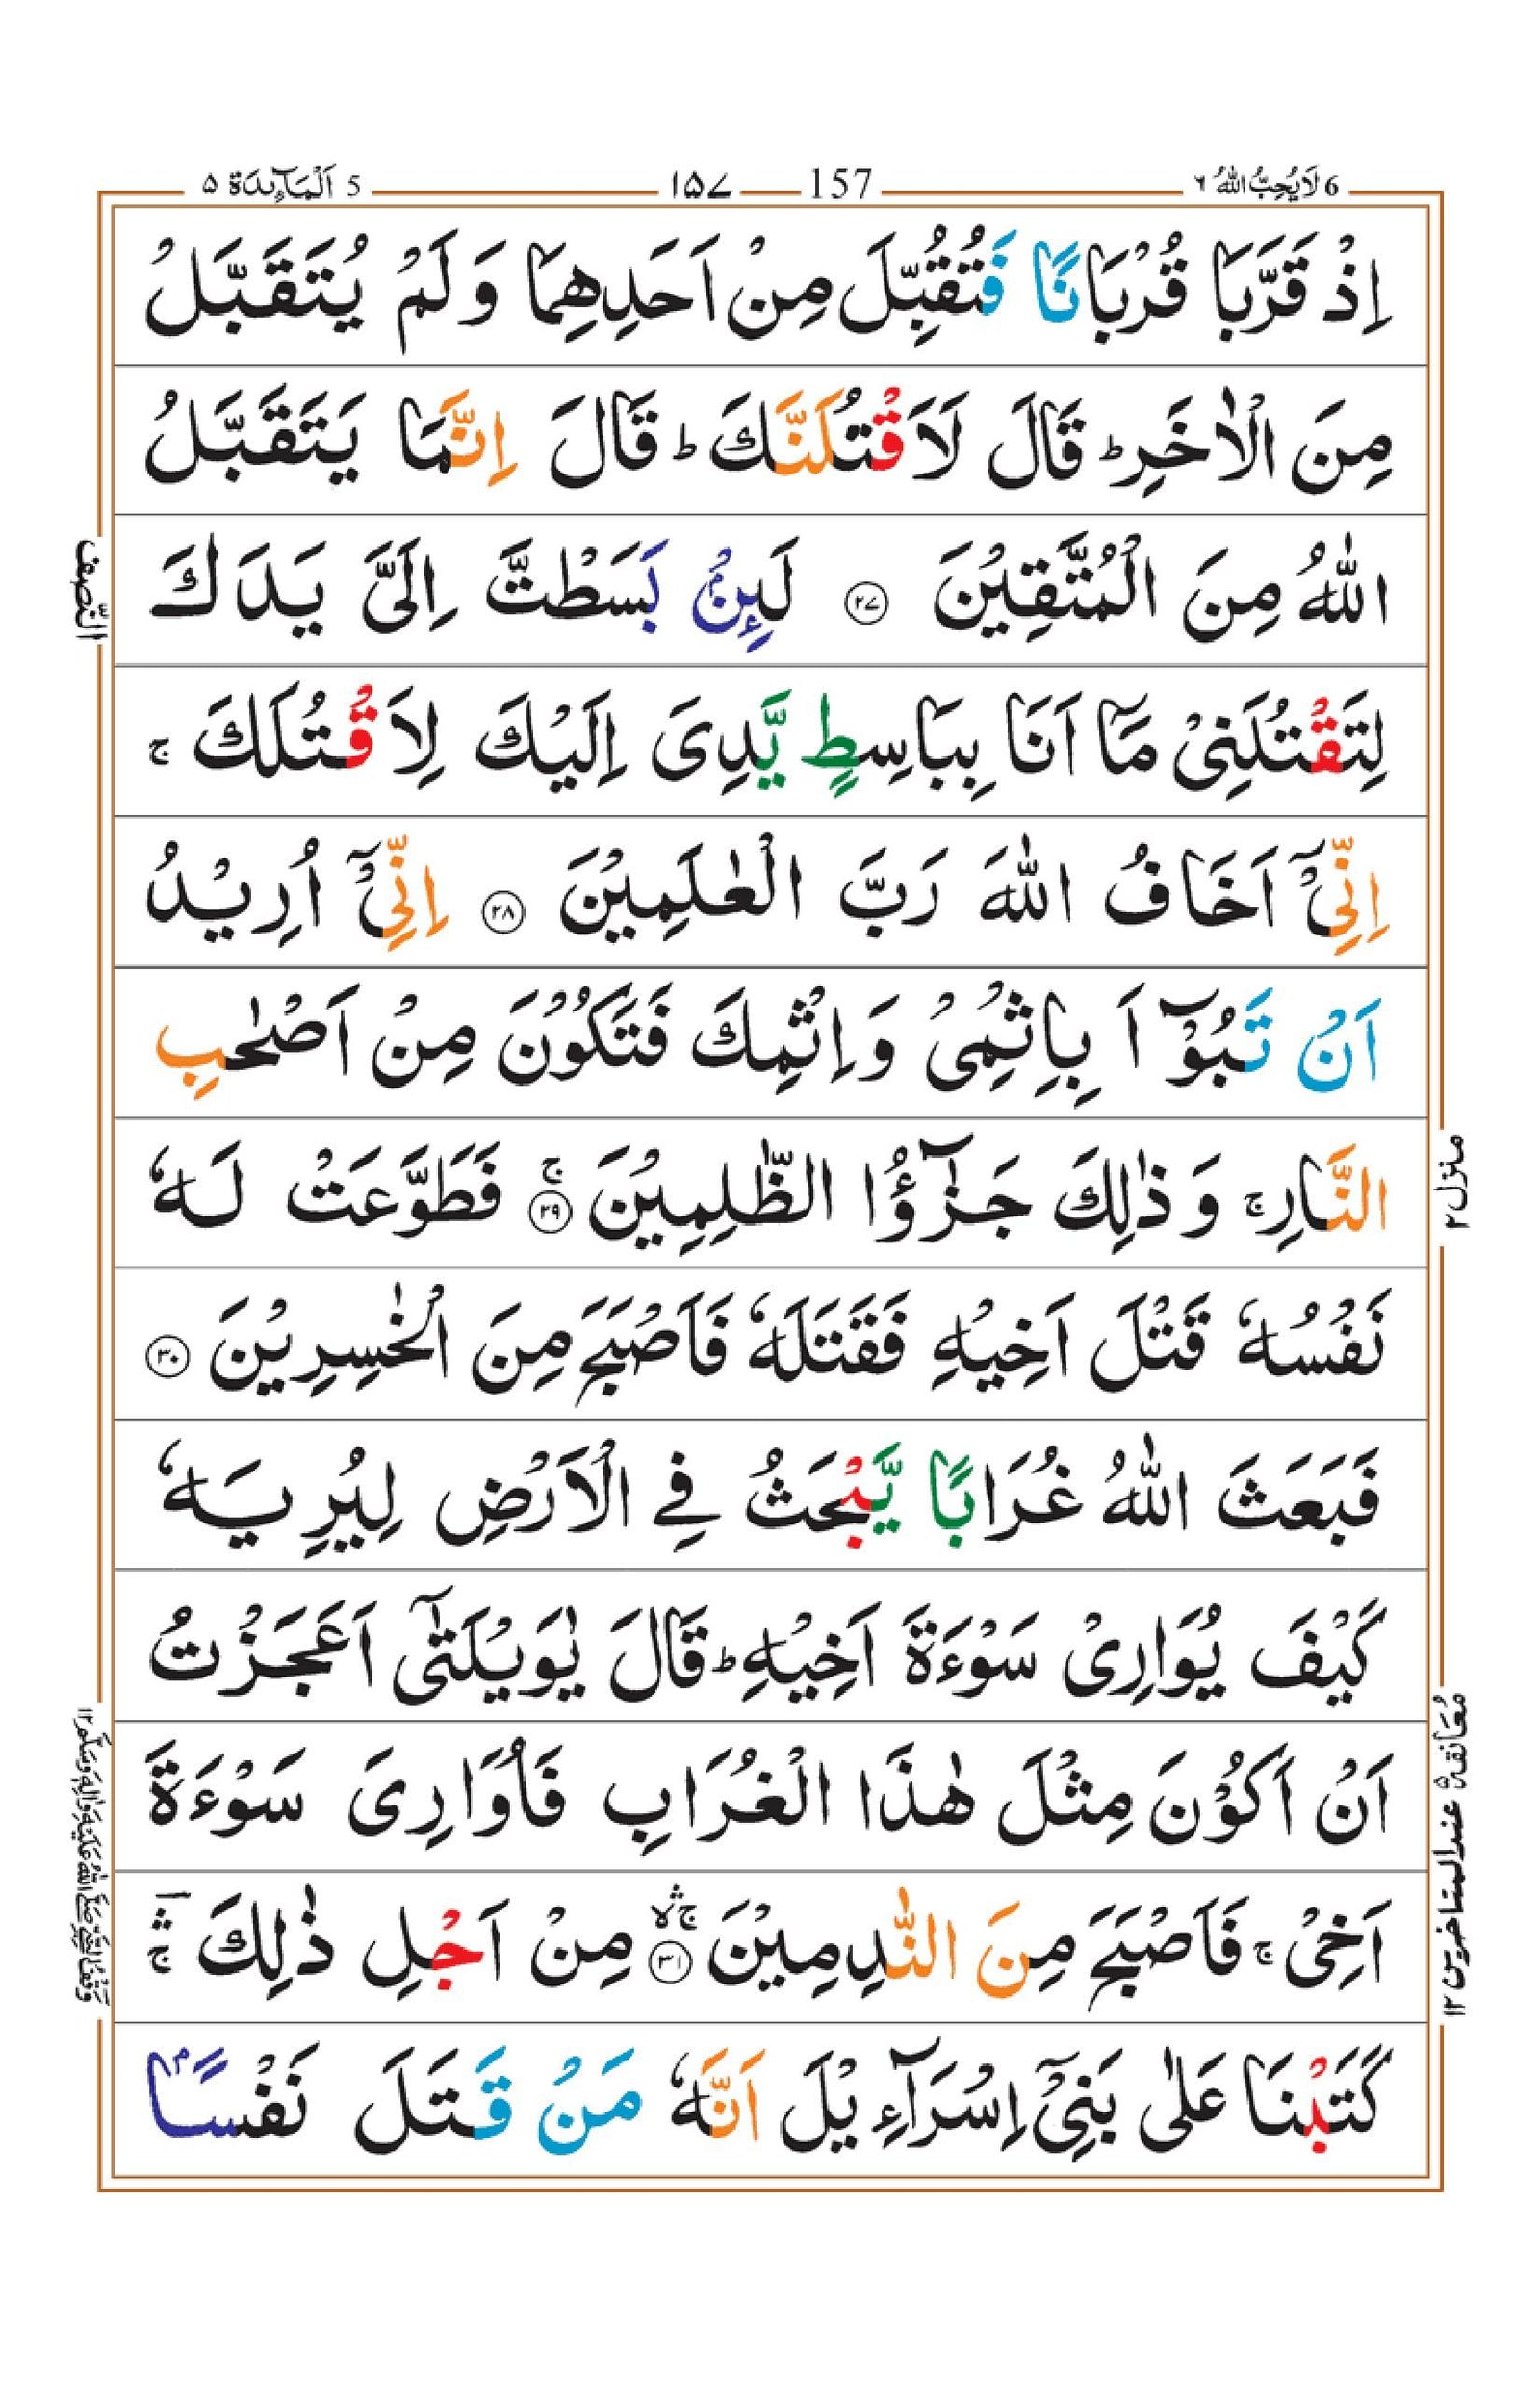 6 لَا يُحِبُّ اللّٰهُ ٦
157 ١۵٧
5 اَلْمَآئِدَة ۵
اِذْ قَرَّبَا قُرْبَانًا فَتُقُبِّلَ مِنْ اَحَدِهِمَا وَلَمْ يُتَقَبَّلْ
مِنَ الْاٰخَرِؕ قَالَ لَاَقْتُلَنَّكَؕ قَالَ اِنَّمَا يَتَقَبَّلُ
اللّٰهُ مِنَ الْمُتَّقِيْنَ ﴿۲۷﴾ لَئِنْۢ بَسَطْتَّ اِلَیَّ يَدَكَ
لِتَقْتُلَنِیْ مَاۤ اَنَا بِبَاسِطٍ يَّدِیَ اِلَيْكَ لِاَقْتُلَكَۚ
اِنِّیْۤ اَخَافُ اللّٰهَ رَبَّ الْعٰلَمِيْنَ ﴿۲۸﴾ اِنِّیْۤ اُرِيْدُ
اَنْ تَبُوْٓاَ بِاِثْمِیْ وَاِثْمِكَ فَتَكُوْنَ مِنْ اَصْحٰبِ
النَّارِۚ وَذٰلِكَ جَزٰٓؤُا الظّٰلِمِيْنَۚ ﴿۲۹﴾ فَطَوَّعَتْ لَهٗ
نَفْسُهٗ قَتْلَ اَخِيْهِ فَقَتَلَهٗ فَاَصْبَحَ مِنَ الْخٰسِرِيْنَ ﴿۳۰﴾
فَبَعَثَ اللّٰهُ غُرَابًا يَّبْحَثُ فِی الْاَرْضِ لِيُرِيَهٗ
كَيْفَ يُوَارِیْ سَوْءَةَ اَخِيْهِؕ قَالَ يٰوَيْلَتٰۤی اَعَجَزْتُ
اَنْ اَكُوْنَ مِثْلَ هٰذَا الْغُرَابِ فَاُوَارِیَ سَوْءَةَ
اَخِیْۚ فَاَصْبَحَ مِنَ النّٰدِمِيْنَ ۛۚۙ ﴿۳۱﴾ مِنْ اَجْلِ ذٰلِكَ ۛۚ
كَتَبْنَا عَلٰی بَنِیْۤ اِسْرَآءِيْلَ اَنَّهٗ مَنْ قَتَلَ نَفْسًاۢ
النِّصف
منزل ۲
مُعَانقة ۵ عند المتاخرين ۱۲
وَقْفُ النَّبِيِّ صَلَّى اللّٰهُ عَلَيْهِ وَاٰلِهٖ وَسَلَّم ۱۲